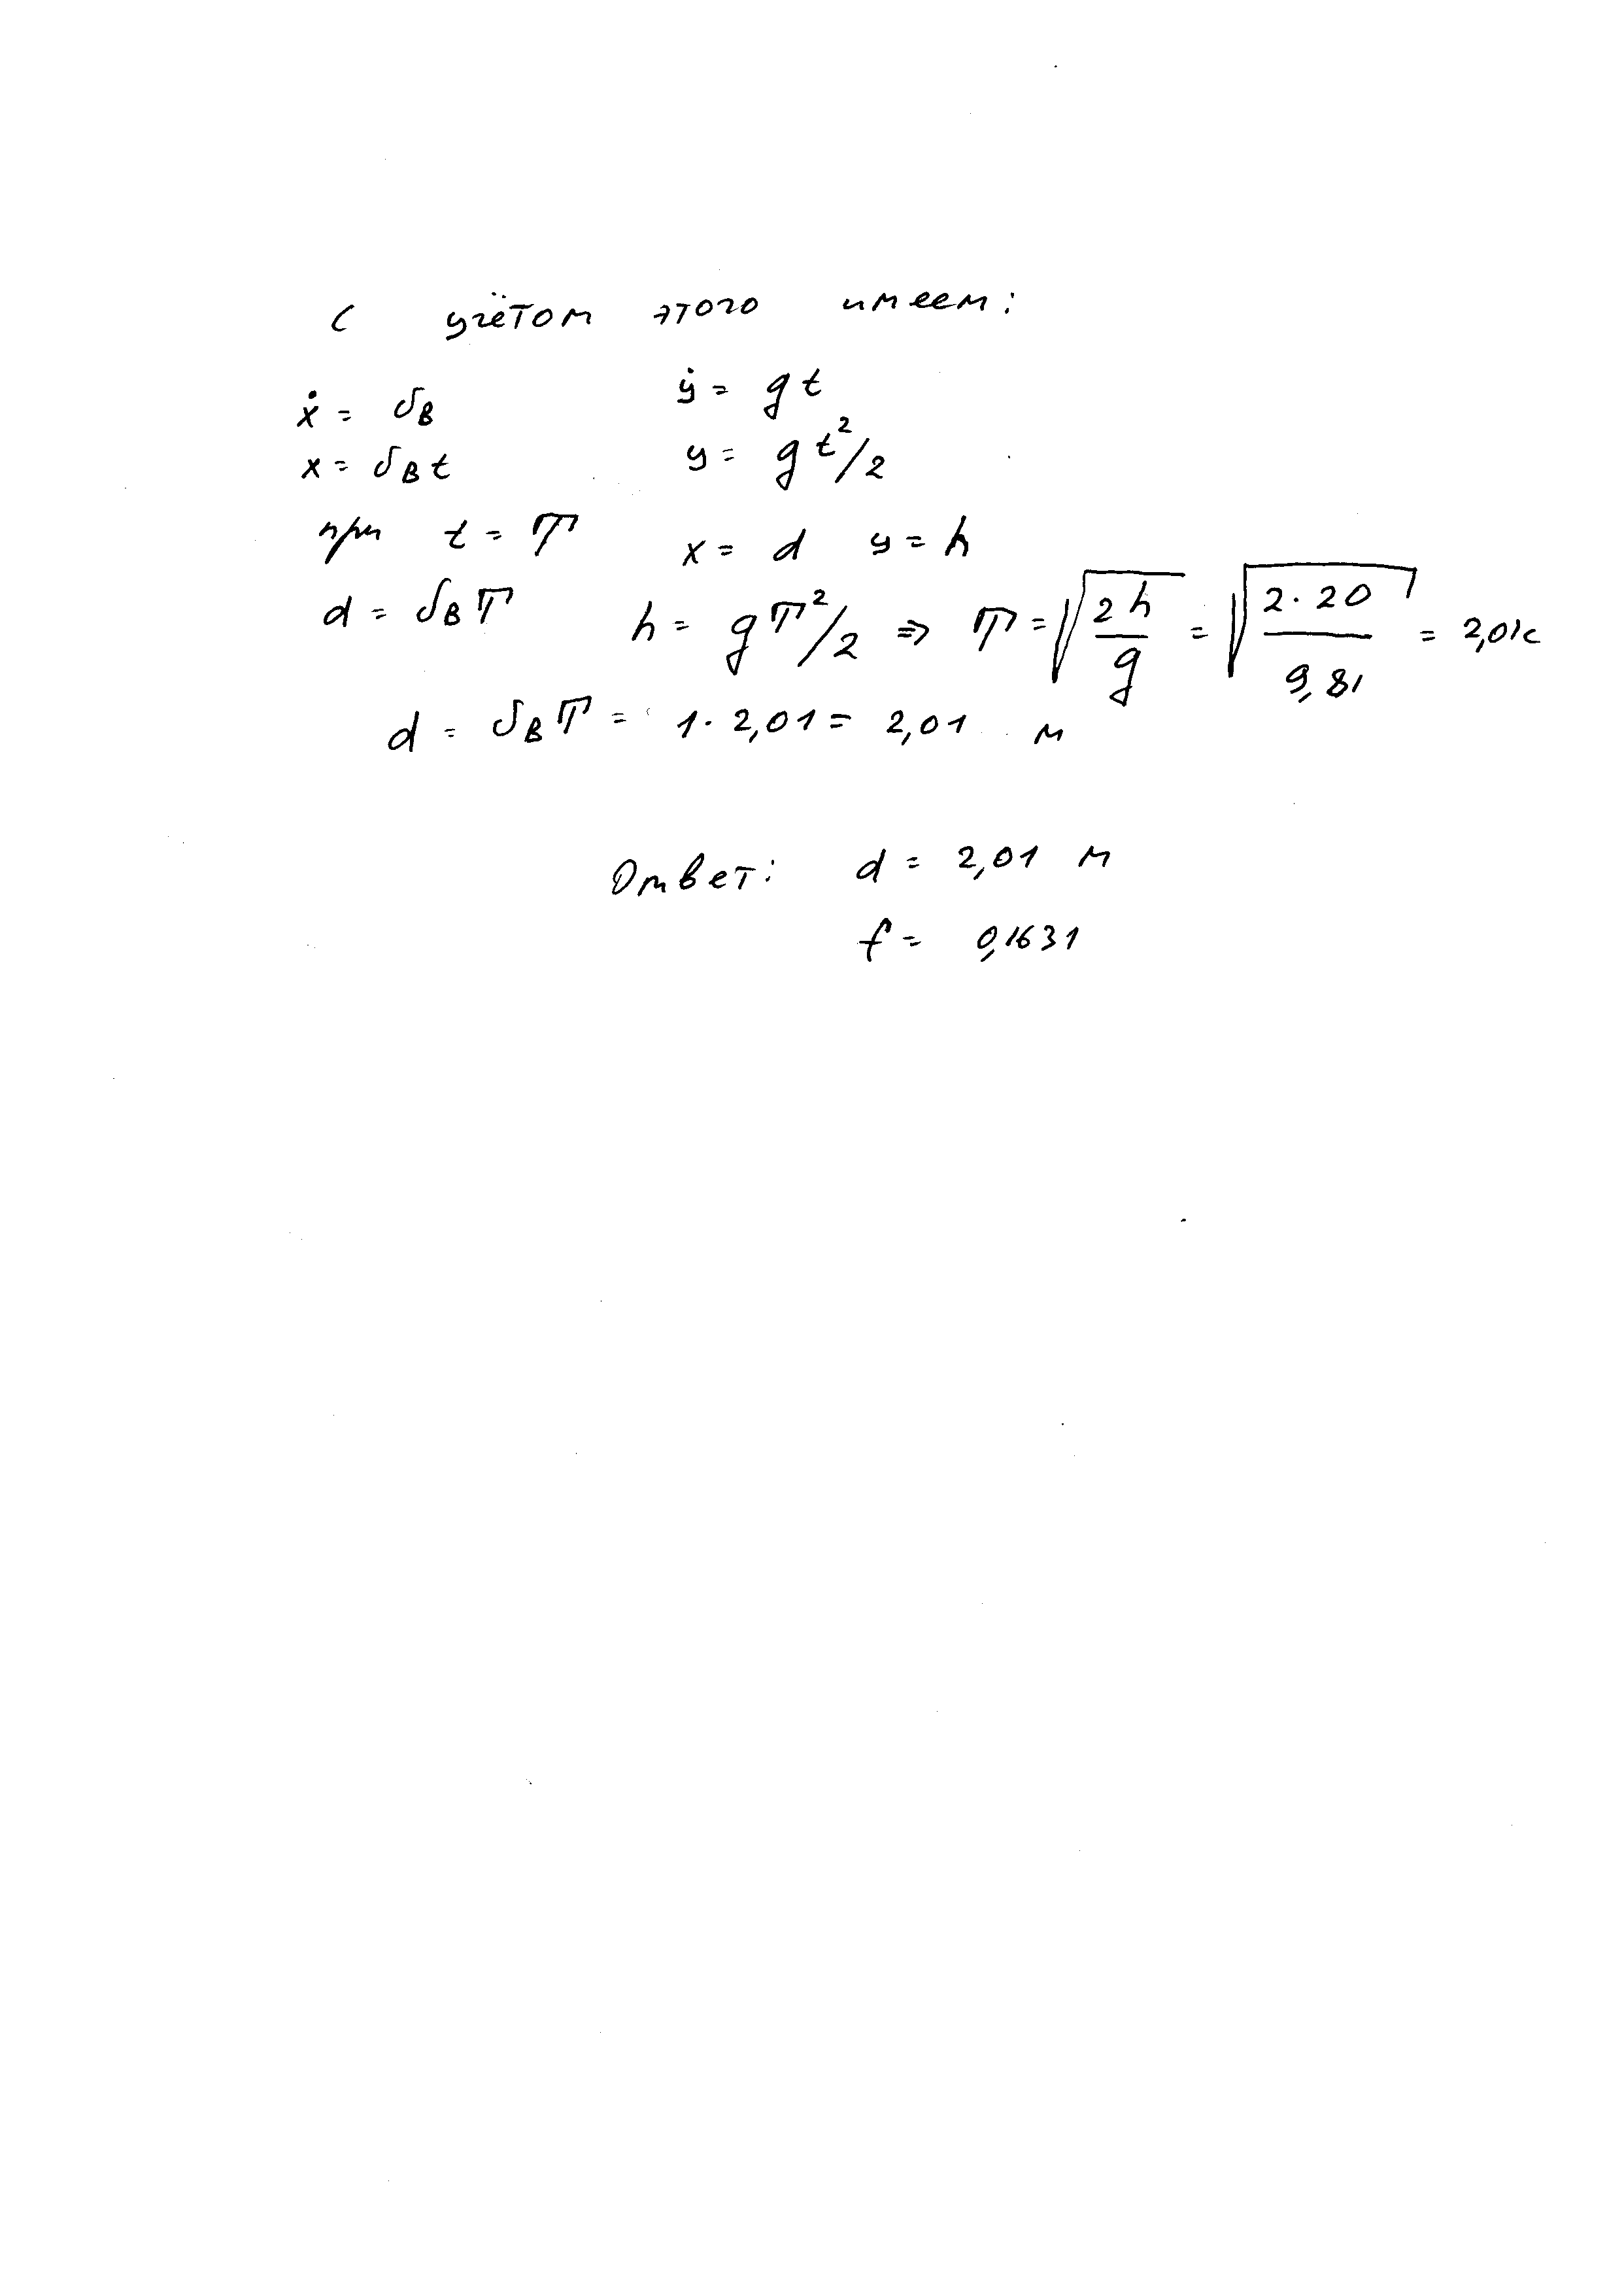 С учётом этого имеем:
ẋ = υ_B ẏ = gt
x = υ_B t y = gt²/2
при t = T x = d y = h
d = υ_B T h = gT²/2 ⇒ T = √(2h/g) = √(2·20/9,81) = 2,01с
d = υ_B T = 1·2,01 = 2,01 м
Ответ: d = 2,01 м
f = 0,1631